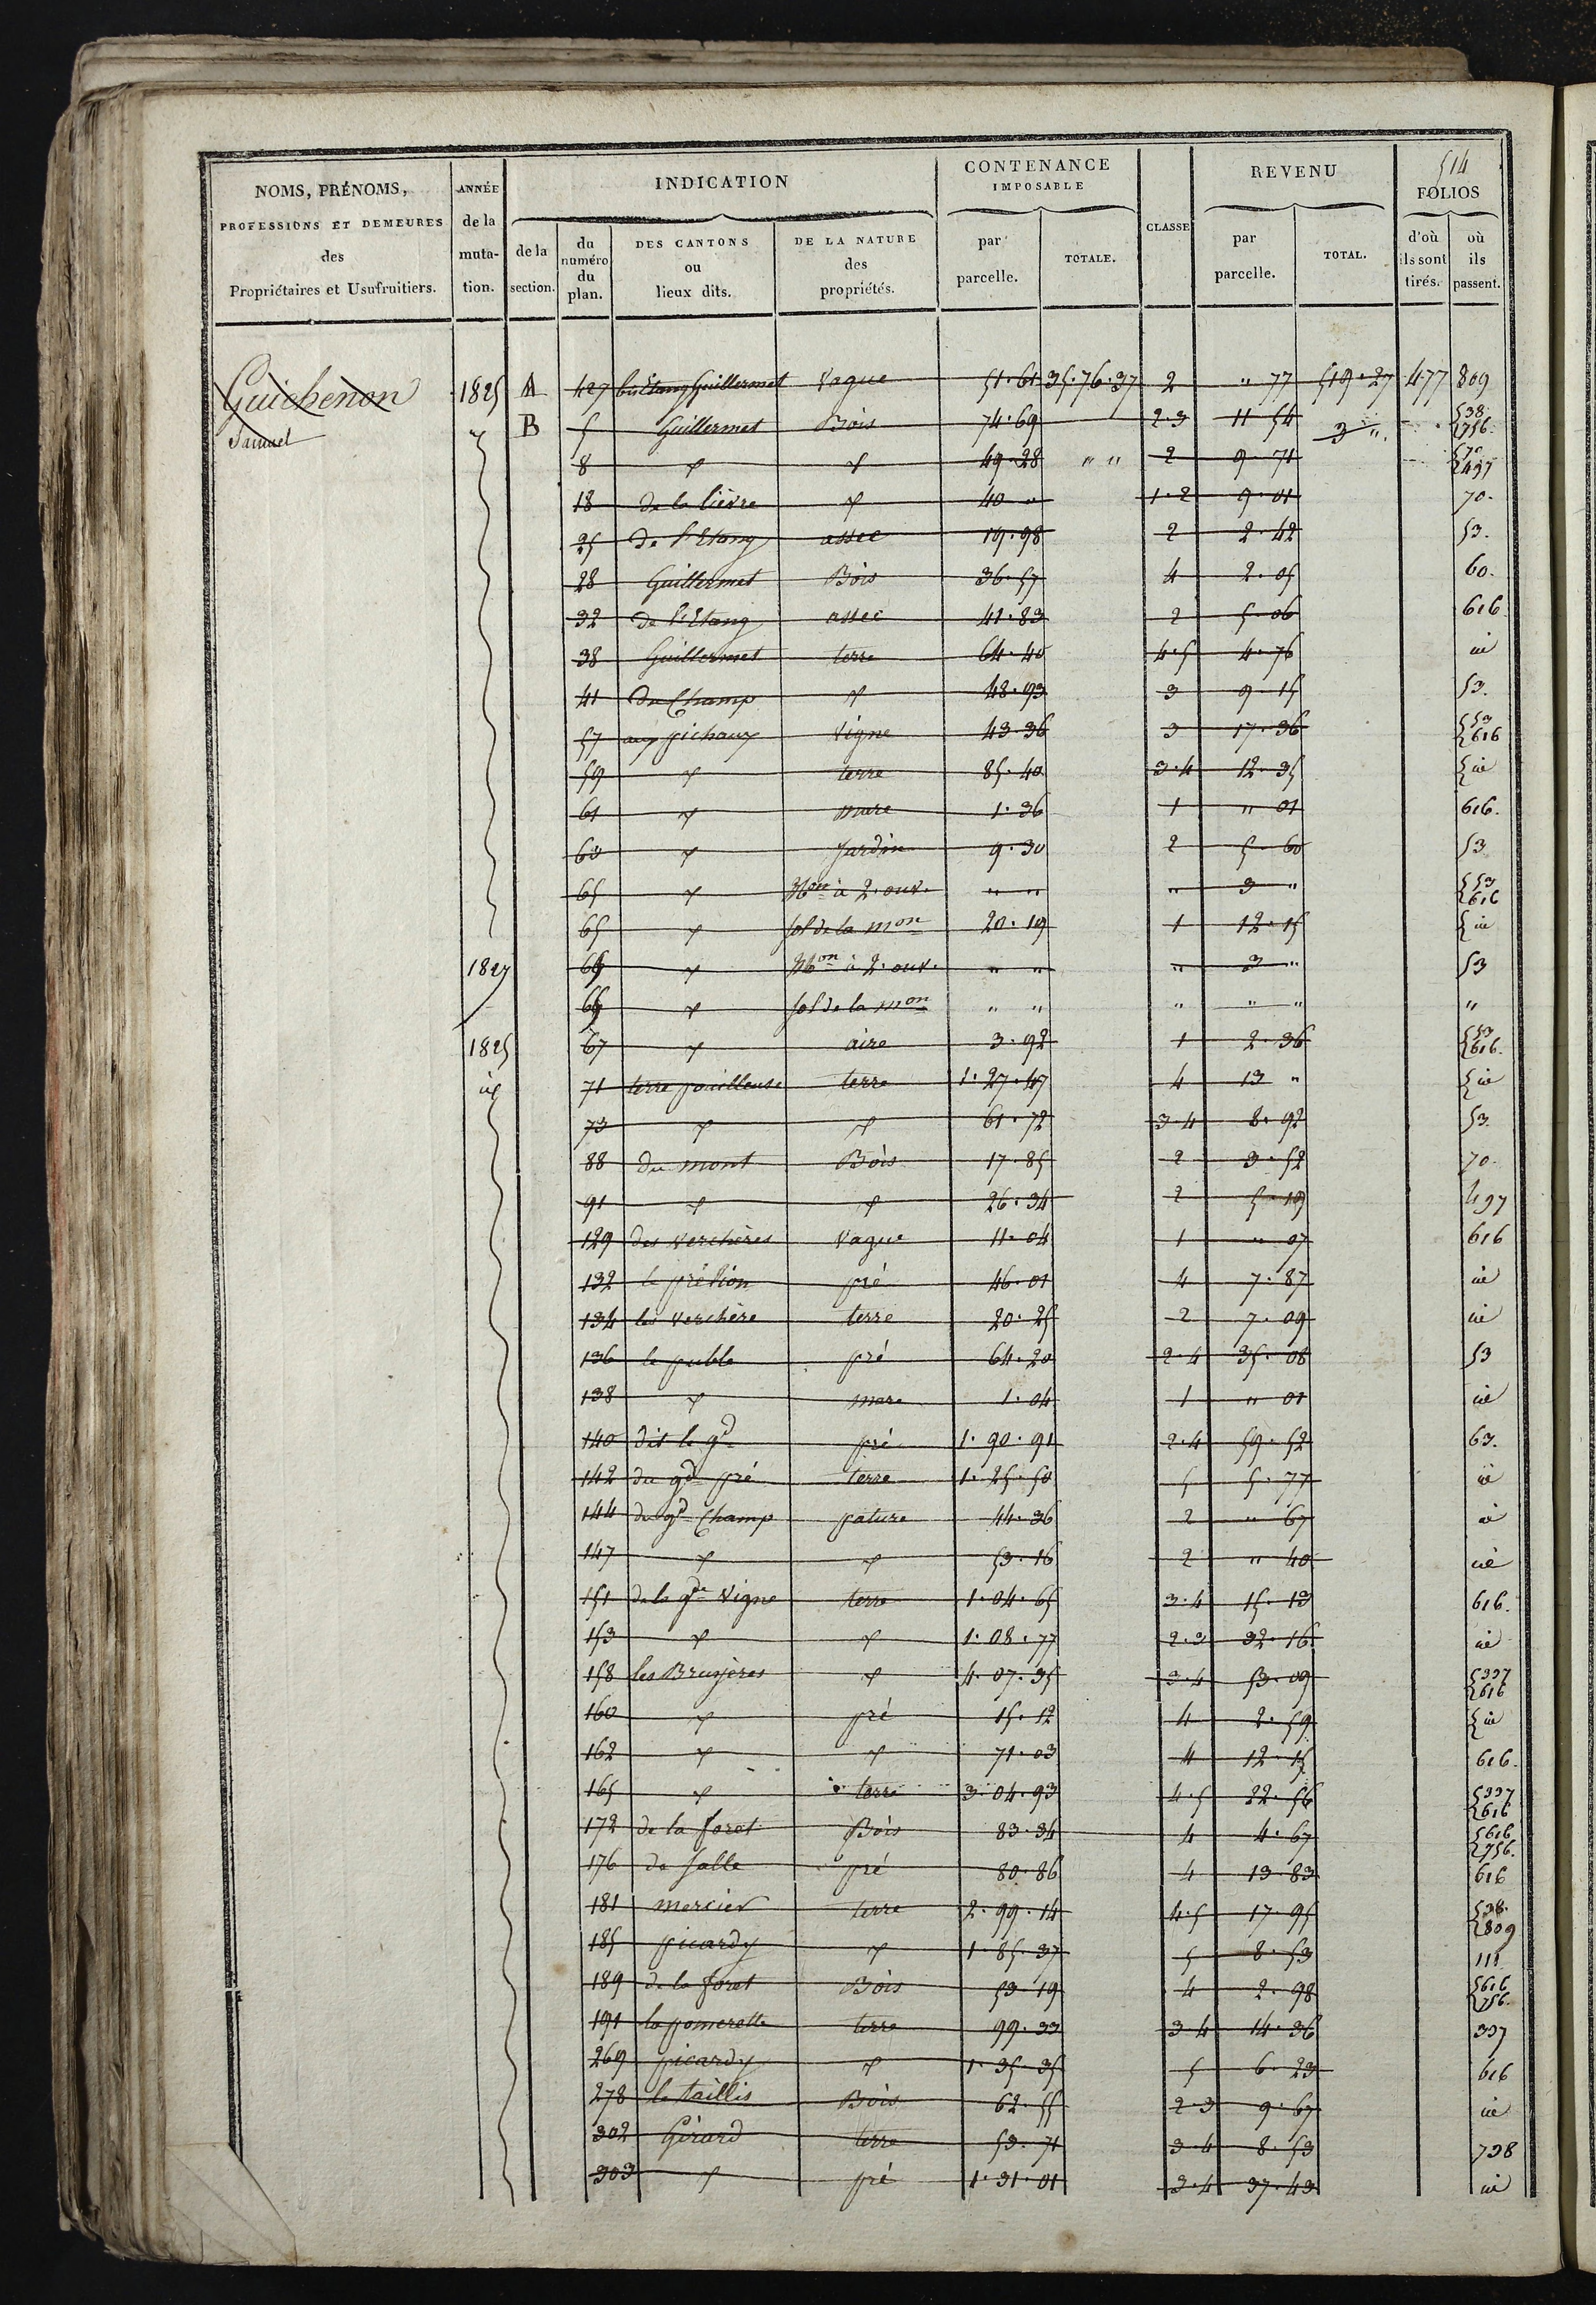 514
NOMS, PRÉNOMS, PROFESSIONS ET DEMEURES des Propriétaires et Usufruitiers.
ANNÉE de la muta-tion.
INDICATION
de la section.
du numéro du plan.
DES CANTONS ou lieux dits.
DE LA NATURE des propriétés.
CONTENANCE IMPOSABLE
par parcelle.
TOTALE.
CLASSE
REVENU
par parcelle.
TOTAL.
FOLIOS
d'où ils sont tirés.
où ils passent.
Guichenon 1825 A 427 Etang Guillermet Vague 51.61 35.76.37 2 " 77 519.27 477 809
Samuel B 5 Guillermet Bois 74.69 2.3 11 54 3 " 538 756
8 " " 49.28 " " 2 9.71 70 497
18 de la lièvre " 40 " 1.2 9.01 70.
25 de l'Etang assec 19.98 2 2.42 53.
28 Guillermet Bois 36.57 4 2.05 60.
32 de l'Etang assec 41.83 2 5.06 616
38 Guillermet terre 64.40 4.5 4.76 id
41 du Champ " 48.93 3 9.15 53.
57 aux pichaux vigne 43.36 3 17.36 53 616
59 " terre 85.40 3.4 12.35 id
61 " mare 1.36 1 " 01 616.
" Jardin 9.30 2 5.60 53
65 " Mon à 2. ouv. " " " 3 " 53 616
65 " sol de la mon 20.19 1 12.15 id
1827 " Mon à 2. ouv. " " " 3 " 53
" sol de la mon " " " " " "
1825 67 " aire 3.92 1 2.36 53 616.
id 71 terre pouilleuse terre 1.27.47 4 13 " id
73 " " 61.72 3.4 8.92 53.
88 du mont Bois 17.85 2 3.52 70.
91 " " 26.34 2 5.19 497
129 des verchères Vague 11.04 1 " 07 616
132 pré 46.01 4 7.87 id
134 les verchère terre 20.25 2 7.09 id
136 le puble pré 64.20 2.4 35.08 53
138 " mare 1.04 1 " 01 id
140 dit le gd pré 1.90.91 2.4 59.52 63.
142 du gd pré terre 1.25.50 5 5.77 id
144 du gd Champ pature 44.36 2 " 67 id
147 " " 53.16 2 " 40 id
151 de la gde vigne terre 1.04.65 3.4 15.13 616.
153 " " 1.08.77 2.3 32.16 id
158 les Bruyères " 4.07.35 3.4 53.09 337 616
160 " pré 15.12 4 2.59 id
162 " " 71.03 4 12.15 616.
165 " terre 3.04.93 4.5 22.56 337 616
172 de la foret Bois 83.34 4 4.67 616 756.
176 de salle pré 80.86 4 13.83 616
181 mercier terre 2.99.14 4.5 17.95 538. 809
185 picardy " 1.85.37 5 8.53 111
189 de la foret Bois 53.19 4 2.98 616 756.
191 la pomerette terre 99.33 3.4 14.36 337
269 picardy " 1.35.35 5 6.23 616
278 le taillis Bois 62.55 2.3 9.67 id
302 Girard terre 53.71 3.4 8.53 738
303 " pré 1.31.01 3.4 37.43 id